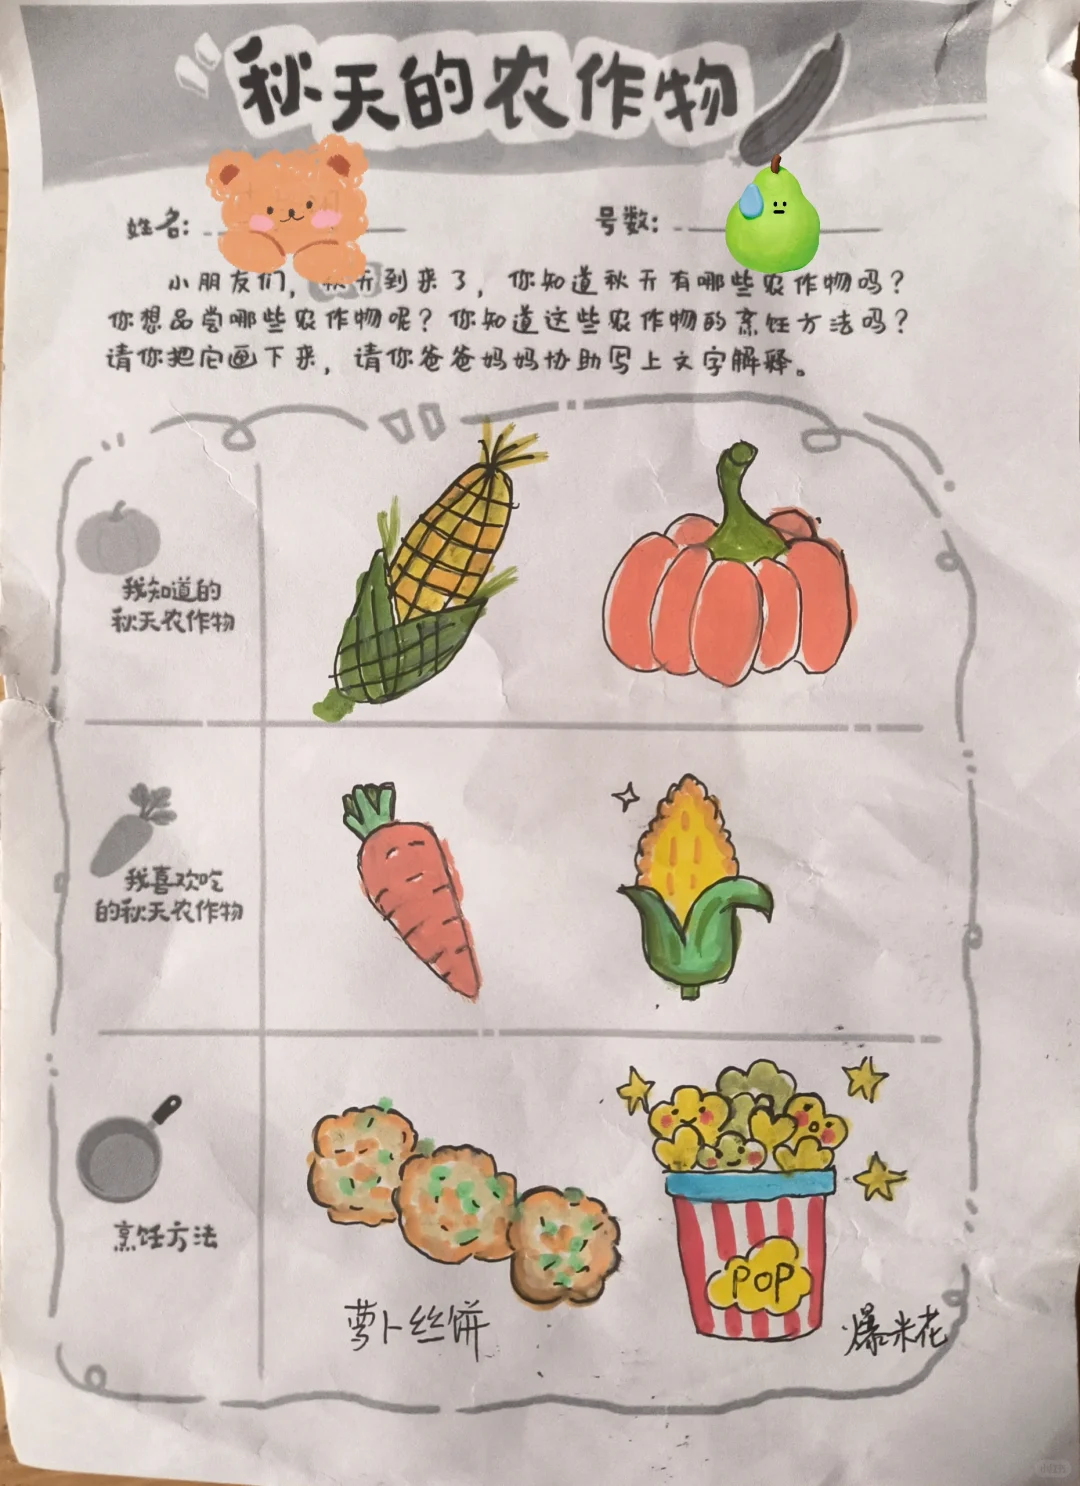 秋天的农作物
姓名：
号数：
小朋友们，秋天到来了，你知道秋天有哪些农作物吗？
你想品尝哪些农作物呢？你知道这些农作物的烹饪方法吗？
请你把它画下来，请你爸爸妈妈协助写上文字解释。
我知道的
秋天农作物
我喜欢吃
的秋天农作物
烹饪方法
POP
萝卜丝饼
爆米花
小红书